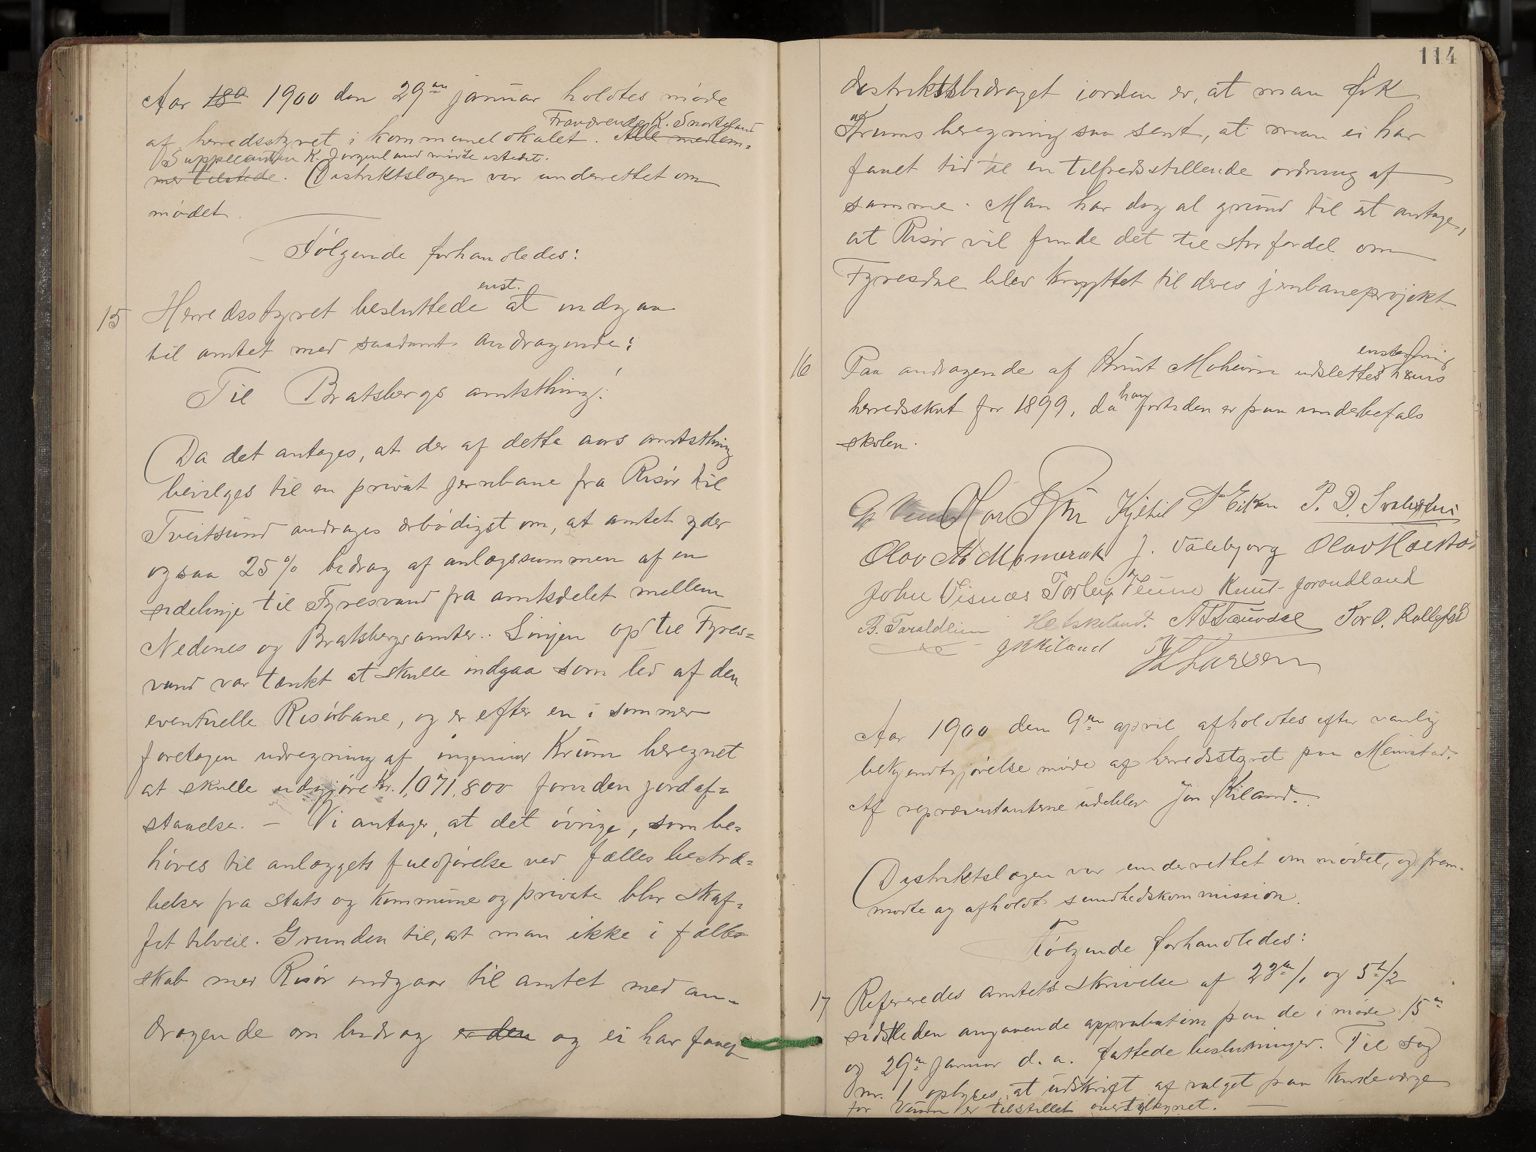 Aar 180 1900 den 29de januar holdtes møde
Fraværende K. Snarteland
af herredsstyret i kommunelokalet. Alle medlem=
Suppleanten K. Jorgenland mødte istedet.
mer tilstede. Distriktslægen var underrettet om
mødet.
Følgende forhandledes:
enst.
15 Herredsstyret besluttede at indgaa
til amtet med saadant andragende:
Til Bratsbergs amtsthing!
Da det antages, at der af dette aars amtsthing
bevilges til en privat jernbane fra Risør til
Tveitsund andrages ærbødigst om, at amtet yder
ogsaa 25% bidrag af anlægssummen af en
sidelinje til Fyresvand fra amtsdelet mellem
Nedenes og Bratsbergs amter. Linjen op til Fyres=
vand var tænkt at skulle indgaa som led af den
eventuelle Risørbane, og er efter en i sommer
foretagen udregning af ingeniør Krum beregnet
at skulle udgjøre kr. 1,071,800 foruden jordaf=
staaelse. – Vi antager, at det øvrige, som be=
høves til anlæggets fuldførelse ved fælles bestræ=
belser fra stats og kommune og private blir skaf=
fet tilveie. Grunden til, at man ikke i fælles=
skab med Risør indgaar til amtet med an=
dragende om bidrag er den og ei har faaet
114
distriktsbidraget iorden er, at man fik
Krums beregning saa sent, at man ei har
faaet tid til en tilfredsstillende ordning af
samme. Man har dog al grund til at antage,
at Risør vil finde det til stor fordel om
Fyresdal blev knyttet til deres jernbaneprojekt.
enstemmig
16 Paa andragende af Knut Moheim udslettes hans
herredsskat for 1899, da han fortiden er paa underbefals
skolen.
Olav Kjeltil P. D.
Olav J. Valebjorg Olav
John Visnæs Torleiv Veum Knut Jorundland
B. Taraldlien Tor O. Rollefstad
G K Kiland H Larsen
Aar 1900 den 9de april afholdtes efter vanlig
bekjendtgjørelse møde af herredsstyret paa Meinstad.
Af repræsentanterne udeblev Jon Kiland.
Distriktslægen var underrettet om mødet, og frem-
mødte og afholdt sundhedskommission.
Følgende forhandledes:
17 Refereredes amtets skrivelse af 23de/1 og 5te/2
sidstleden angaaende approbation paa de i møde 15de
og 29de januar d. a. fattede beslutninger. Til sag
nr. 1 oplyses, at udskrift af valget paa kirkeværge
for Veum er tilstillet overtilsynet. —